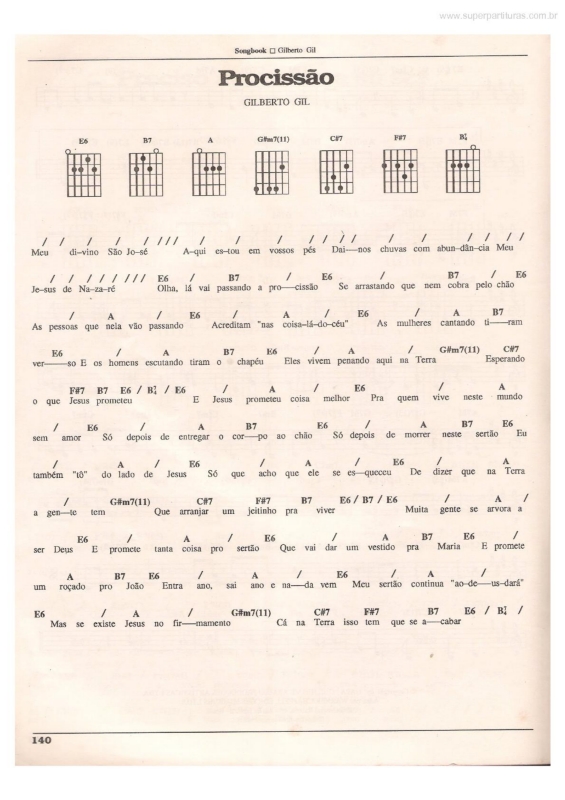 www.superpartituras.com.br
Songbook □ Gilberto Gil
Procissão
GILBERTO GIL
E6 B7 A G#m7(11) C#7 F#7
/ / / / / / / / / / / / / / / / / / / / / /
Meu di-vino São Jo-sé A-qui es-tou em vossos pés Dai—nos chuvas com abun-dân-cia Meu
/ / / / / / / / / E6 / B7 / E6 / B7 / E6
Je-sus de Na-za-ré Olha, lá vai passando a pro—cissão Se arrastando que nem cobra pelo chão
/ A / E6 / A / E6 / A B7
As pessoas que nela vão passando Acreditam "nas coisa-lá-do-céu" As mulheres cantando ti—ram
E6 / A B7 E6 / A / G#m7(11) C#7
ver—so E os homens escutando tiram o chapéu Eles vivem penando aqui na Terra Esperando
F#7 B7 E6 / / E6 / A / E6 / A
o que Jesus prometeu E Jesus prometeu coisa melhor Pra quem vive neste mundo
/ E6 / A B7 E6 / A B7 E6
sem amor Só depois de entregar o cor—po ao chão Só depois de morrer neste sertão Eu
/ A / E6 / A / E6 / A
também "tô" do lado de Jesus Só que acho que ele se es-queceu De dizer que na Terra
/ G#m7(11) C#7 F#7 B7 E6 / B7 / E6 / A /
a gen—te tem Que arranjar um jeitinho pra viver Muita gente se arvora a
E6 / A / E6 / A B7 E6 /
ser Deus E promete tanta coisa pro sertão Que vai dar um vestido pra Maria E promete
A B7 E6 / A / E6 / A /
um roçado pro João Entra ano, sai ano e na—da vem Meu sertão continua "ao-de—us-dará"
E6 / A / G#m7(11) C#7 F#7 B7 E6 / /
Mas se existe Jesus no fir—mamento Cá na Terra isso tem que se a—cabar
140